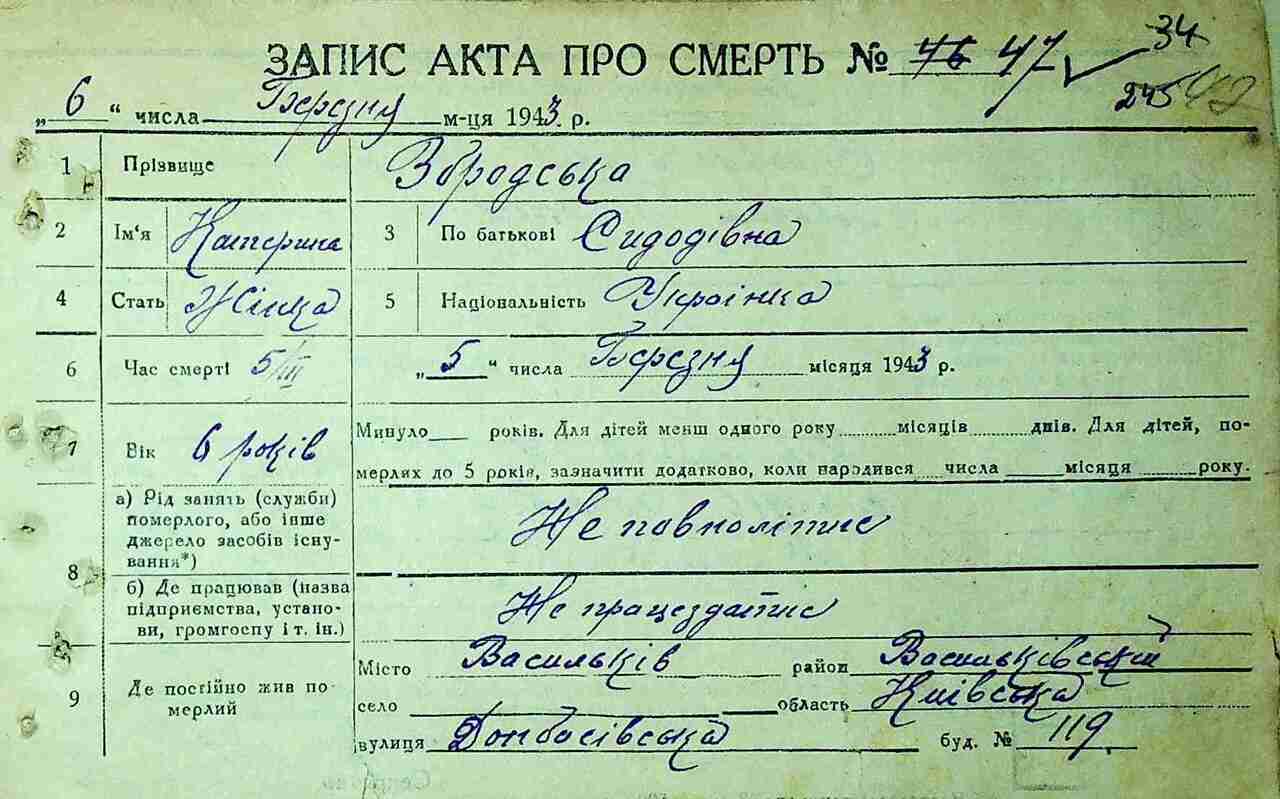 ЗАПИС АКТА ПРО СМЕРТЬ № 46 47 34
245 42
„6“ числа Березня м-ця 1943 р.
1 Прізвище Збродська
2 Ім'я Катерина 3 По батькові Сидодівна
4 Стать Жінка 5 Національність Українка
6 Час смерті 5/III „5“ числа Березня місяця 1943 р.
7 Вік 6 років Минуло років. Для дітей менш одного року місяців днів. Для дітей, по-
мерлих до 5 років, зазначити додатково, коли народився числа місяця року.
8 а) Рід занять (служби)
померлого, або інше
джерело засобів існу-
вання*)
Не повноліттнє
б) Де працював (назва
підприємства, устано-
ви, громгоспу і т. ін.)
Не працездатнє
9 Де постійно жив по-
мерлий
Місто Васильків район Васильківський
село область Київська
вулиця Донбасівська буд. № 119.